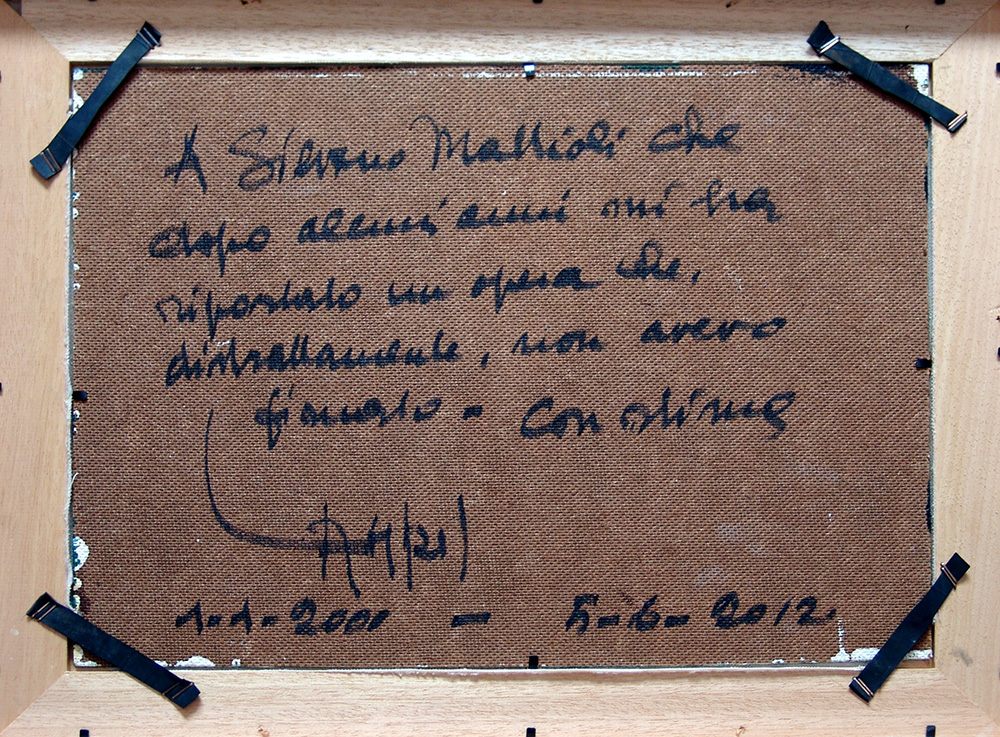 A Silvano Mattioli che
dopo alcuni anni mi ha
riportato un opera che,
distrattamente, non avevo
firmato - Con stima
1-1-2000 - 5-6-2012.